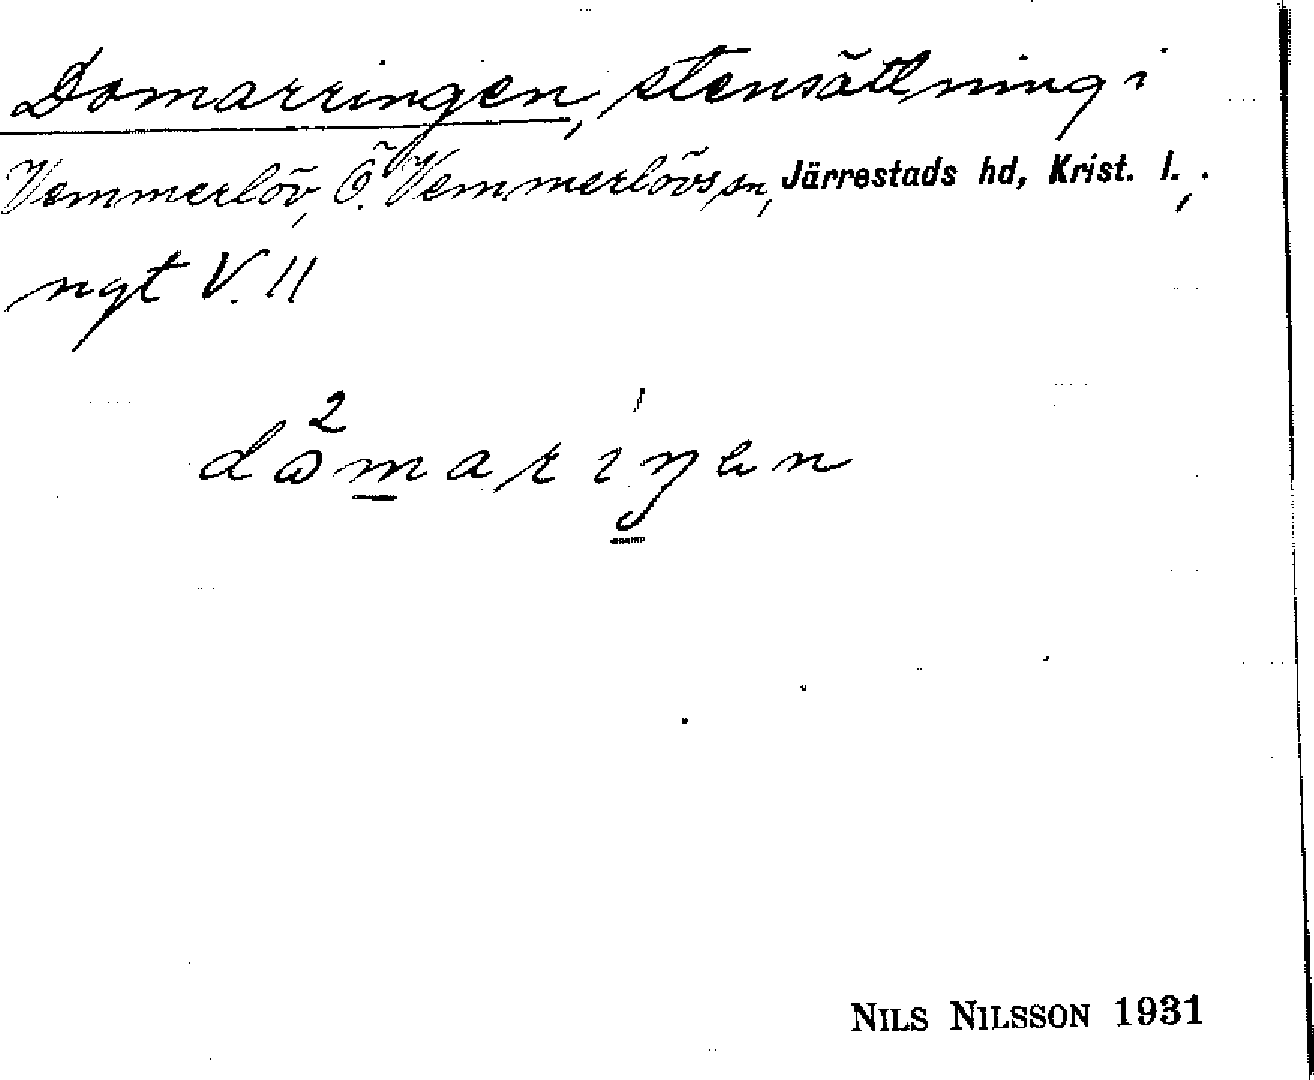 Domarringen, stensättning i
Vemmerlöv, Ö. Vemmerlövs sn, Järrestads hd, Krist. l.,
ngt V. 11
NILS NILSSON 1931